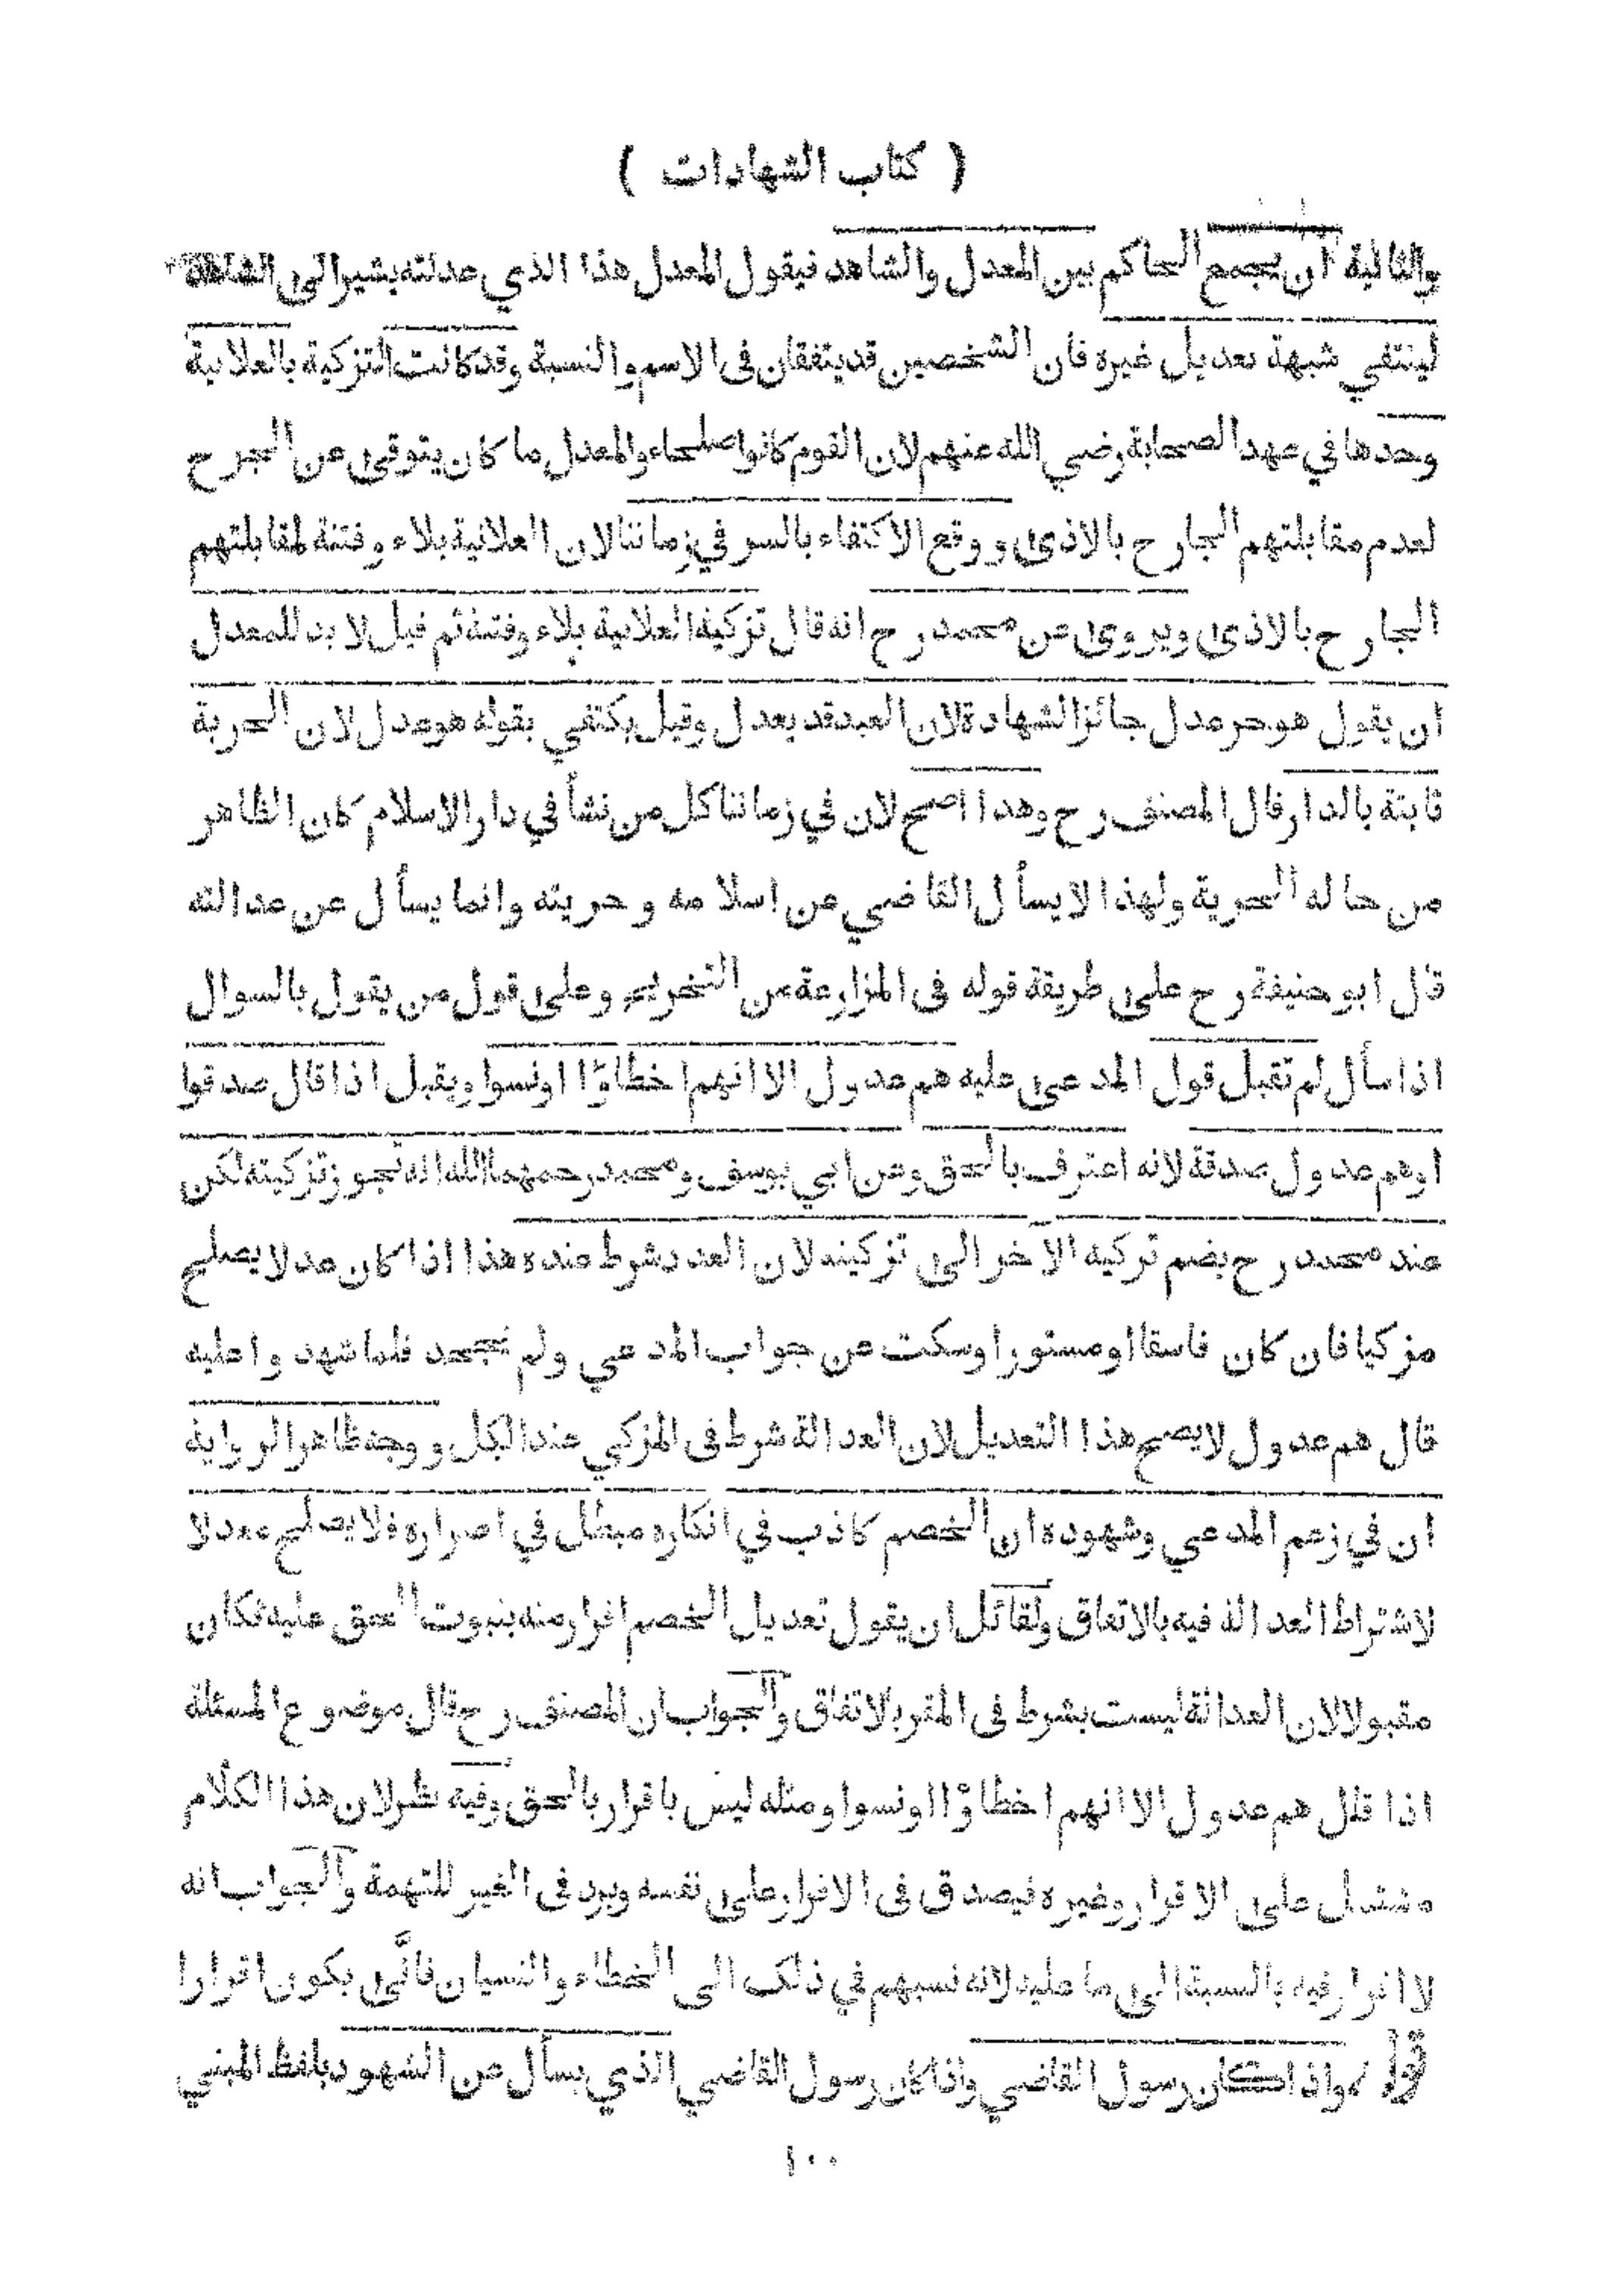 ( كتاب الشهادات )
والثانية ان يجمع الحاكم بين المعدل والشاهد فيقول المعدل هذا الذي عدلته يشير الى الشاهد
لينتفي شبهة تعديل غيره فان الشخصين قد يتفقان فى الاسم والنسبة وقد كانت التزكية بالعلانية
وحدها في عهد الصحابة رضي الله عنهم لان القوم كانوا صلحاء والمعدل ما كان يتوقى عن الجرح
لعدم مقابلتهم الجارح بالاذى ووقع الاكتفاء بالسر في زماننا لان العلانية بلاء وفتنة لمقابلتهم
الجارح بالاذى ويروى عن محمد رح انه قال تزكية العلانية بلاء وفتنة ثم قيل لا بد للمعدل
ان يقول هو حر عدل جائز الشهادة لان العبد قد يعدل وقيل يكتفي بقوله هو عدل لان الحرية
ثابتة بالدار قال المصنف رح وهذا اصح لان في زماننا كل من نشأ في دار الاسلام كان الظاهر
من حاله الحرية ولهذا لا يسأل القاضي عن اسلامه وحريته وانما يسأل عن عدالته
قال ابو حنيفة رح على طريقة قوله فى المزارعة من التخريج وعلى قول من يقول بالسوال
اذا سأل لم تقبل قول المدعى عليه هم عدول الا انهم اخطاؤا او نسوا ويقبل اذا قال صدقوا
او هم عدول صدقة لانه اعترف بالحق وعن ابي يوسف ومحمد رحمهما الله انه تجوز تزكيته لكن
عند محمد رح يضم تزكية الآخر الى تزكيته لان العدد شرط عنده هذا اذا كان عدلا يصلح
مزكيا فان كان فاسقا او مستورا وسكت عن جواب المدعي ولم يجحد فلما شهدوا عليه
قال هم عدول لا يصح هذا التعديل لان العدالة شرط فى المزكي عند الكل ووجه ظاهر الرواية
ان في زعم المدعي وشهوده ان الخصم كاذب في انكاره مبطل في اصراره فلا يصلح معدلا
لاشتراط العدالة فيه بالاتفاق ولقائل ان يقول تعديل الخصم اقرار منه بثبوت الحق عليه فكان
مقبولا لان العدالة ليست بشرط فى المقر بالاتفاق والجواب ان المصنف رح قال موضوع المسئلة
اذا قال هم عدول الا انهم اخطاؤا او نسوا ومثله ليس باقرار بالحق وفيه نظر لان هذا الكلام
مشتمل على الاقرار وغيره فيصدق فى الاقرار على نفسه ويرد فى الغير للتهمة والجواب انه
لا اقرار فيه بالنسبة الى ما عليه لانه نسبهم في ذلك الى الخطاء والنسيان فانّى يكون اقرارا
قوله واذا كان رسول القاضي واذا كان رسول القاضي الذي يسأل عن الشهود بلفظ المبني
١٠٠